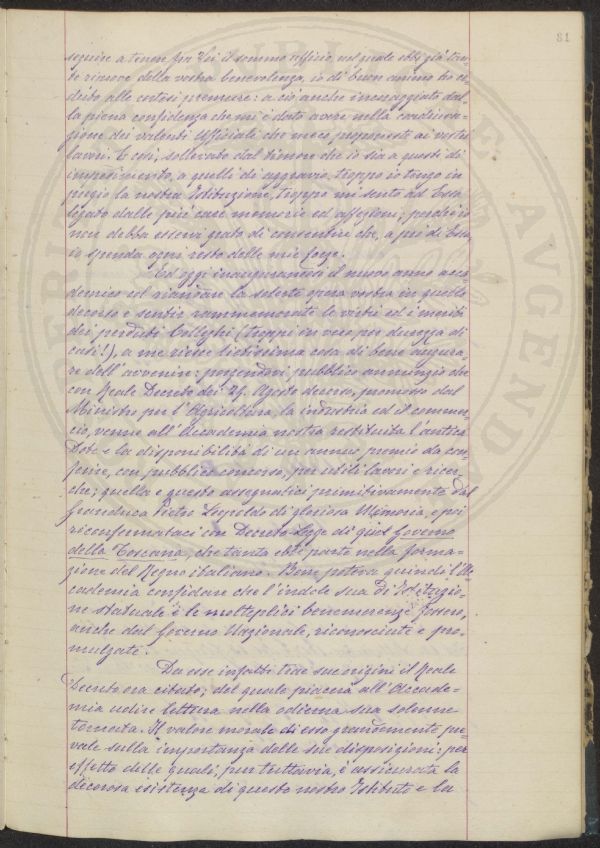 81
seguire a tenere fra Voi il sommo ufficio, nel quale ebbi già tan-
te riprove della vostra benevolenza, io di buon animo ho ce-
duto alle cortesi premure: a ciò anche incoraggiato dal-
la piena confidenza che mi è dato avere nella coadiuva-
zione dei valenti Ufficiali che meco preposeste ai vostri
lavori. E così, sollevato dal timore che io sia a questi di
impedimento, a quelli di aggravio, troppo io tengo in
pregio la nostra Istituzione, troppo mi sento ad Essa
legato dalle più care memorie ed affezioni, perchè io
non debba esservi grato di consentire che, a prò di Essa,
io spenda ogni resto delle mie forze.
Ed oggi inaugurandosi il nuovo anno acca-
demico col riandare la solerte opera vostra in quello
decorso e sentir rammemorate le virtù ed i meriti
dei perduti Colleghi (troppi in vero per durezza di
casi!), a me riesce lietissima cosa di bene augura-
re dell'avvenire: porgendovi pubblico annunzio che
con Reale Decreto dei 29. Agosto decorso, promosso dal
Ministro per l'Agricoltura, la industria ed il commer-
cio, venne all'Accademia nostra restituita l'antica
Dote e la disponibilità di un annuo premio da con-
ferire, con pubblico concorso, per utili lavori e ricer-
che; quella e questo assegnatici primitivamente dal
Granduca Pietro Leopoldo di gloriosa Memoria, e poi
riconfermataci con Decreto Legge di quel Governo
della Toscana, che tanta ebbe parte nella forma-
zione del Regno italiano. Bene poteva quindi l'Ac-
cademia confidare che l'indole sua di Istituzio-
ne statuale e le molteplici benemerenze fossero,
anche dal Governo Nazionale, riconosciute e pro-
mulgate.
Da esse infatti trae sue origini il Reale
Decreto ora citato; del quale piacerà all'Accade-
mia udire lettura nella odierna sua solenne
tornata. Il valore morale di esso grandemente pre-
vale sulla importanza delle sue disposizioni: per
effetto delle quali, pur tuttavia, è assicurata la
decorosa esistenza di questo nostro Istituto e la